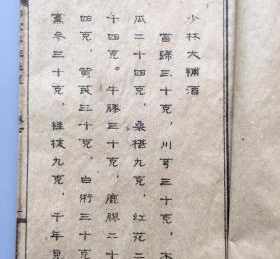 少林大補酒
當歸三十克，川芎三十克，木
瓜二十四克，桑椹九克，紅花二
十四克，牛膝三十克，鹿膠二十
四克，黃芪三十克，白術三十克
黨參三十克，桂枝九克，千年見